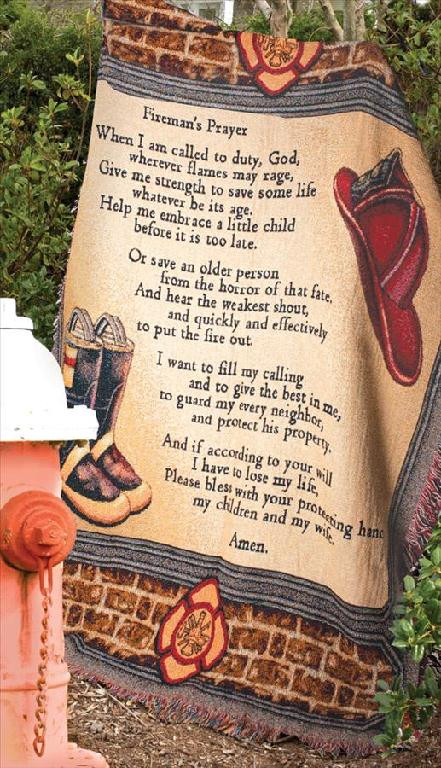 Fireman's Prayer
When I am called to duty, God,
wherever flames may rage,
Give me strength to save some life
whatever be its age.
Help me embrace a little child
before it is too late.
Or save an older person
from the horror of that fate,
And hear the weakest shout,
and quickly and effectively
to put the fire out.
I want to fill my calling
and to give the best in me,
to guard my every neighbor,
and protect his property.
And if according to your will
I have to lose my life,
Please bless with your protecting hand
my children and my wife.
Amen.